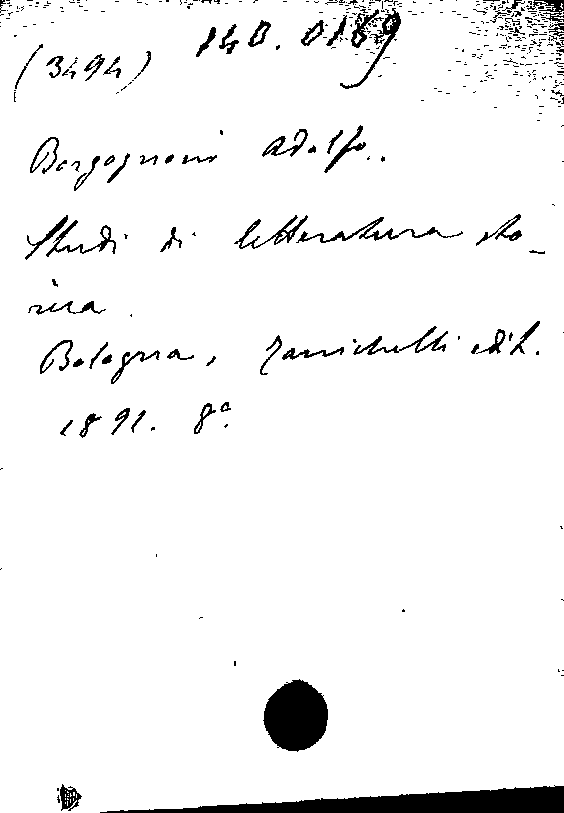 (3494) 140.0169
Borgognoni Adolfo.
Studi di letteratura sto-
rica.
Bologna, Zanichelli edit.
1891. 8º.